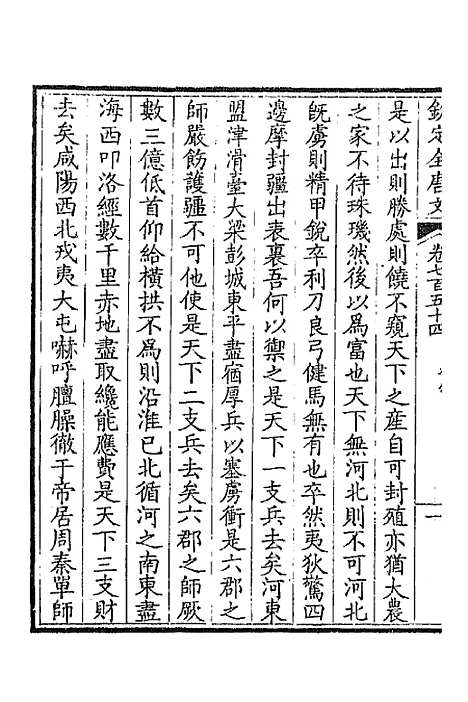 欽定全唐文 卷七百五十四 一
是以出則勝處則饒不窺天下之產自可封殖亦猶大農
之家不待珠璣然後以爲富也天下無河北則不可河北
旣虜則精甲銳卒利刀良弓健馬無有也卒然夷狄驚四
邊摩封疆出表裏吾何以禦之是天下一支兵去矣河東
盟津滑臺大梁彭城東平盡宿厚兵以塞虜衝是六郡之
師嚴飭護疆不可他使是天下二支兵去矣六郡之師厥
數三億低首仰給橫拱不爲則沿淮已北循河之南東盡
海西叩洛經數千里赤地盡取纔能應費是天下三支財
去矣咸陽西北戎夷大屯嚇呼膻臊徹于帝居周秦單師